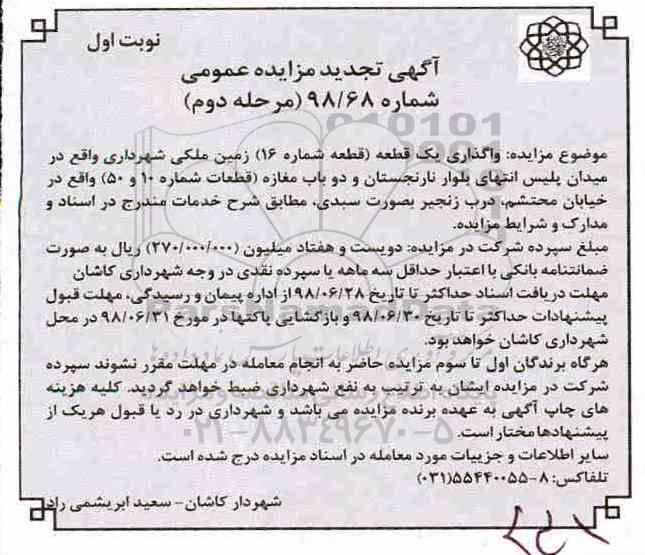 نوبت اول
آگهی تجدید مزایده عمومی
شماره ۹۸/۶۸ (مرحله دوم)
موضوع مزایده: واگذاری یک قطعه (قطعه شماره ۱۶) زمین ملکی شهرداری واقع در
میدان پلیس انتهای بلوار نارنجستان و دو باب مغازه (قطعات شماره ۱۰ و ۵۰) واقع در
خیابان محتشم، درب زنجیر بصورت سبدی، مطابق شرح خدمات مندرج در اسناد و
مدارک و شرایط مزایده.
مبلغ سپرده شرکت در مزایده: دویست و هفتاد میلیون (۲۷۰/۰۰۰/۰۰۰) ریال به صورت
ضمانتنامه بانکی با اعتبار حداقل سه ماهه یا سپرده نقدی در وجه شهرداری کاشان
مهلت دریافت اسناد حداکثر تا تاریخ ۹۸/۰۶/۲۸ از اداره پیمان و رسیدگی، مهلت قبول
پیشنهادات حداکثر تا تاریخ ۹۸/۰۶/۳۰ و بازگشایی پاکتها در مورخ ۹۸/۰۶/۳۱ در محل
شهرداری کاشان خواهد بود.
هرگاه برندگان اول تا سوم مزایده حاضر به انجام معامله در مهلت مقرر نشوند سپرده
شرکت در مزایده ایشان به ترتیب به نفع شهرداری ضبط خواهد گردید. کلیه هزینه
های چاپ آگهی به عهده برنده مزایده می باشد و شهرداری در رد یا قبول هریک از
پیشنهادها مختار است.
۰۲۱-۸۸۳۴۹۶۷۰-۵
سایر اطلاعات و جزییات مورد معامله در اسناد مزایده درج شده است.
تلفاکس: ۸-۵۵۴۴۰۰۵۵(۰۳۱)
شهردار کاشان - سعید ابریشمی راد